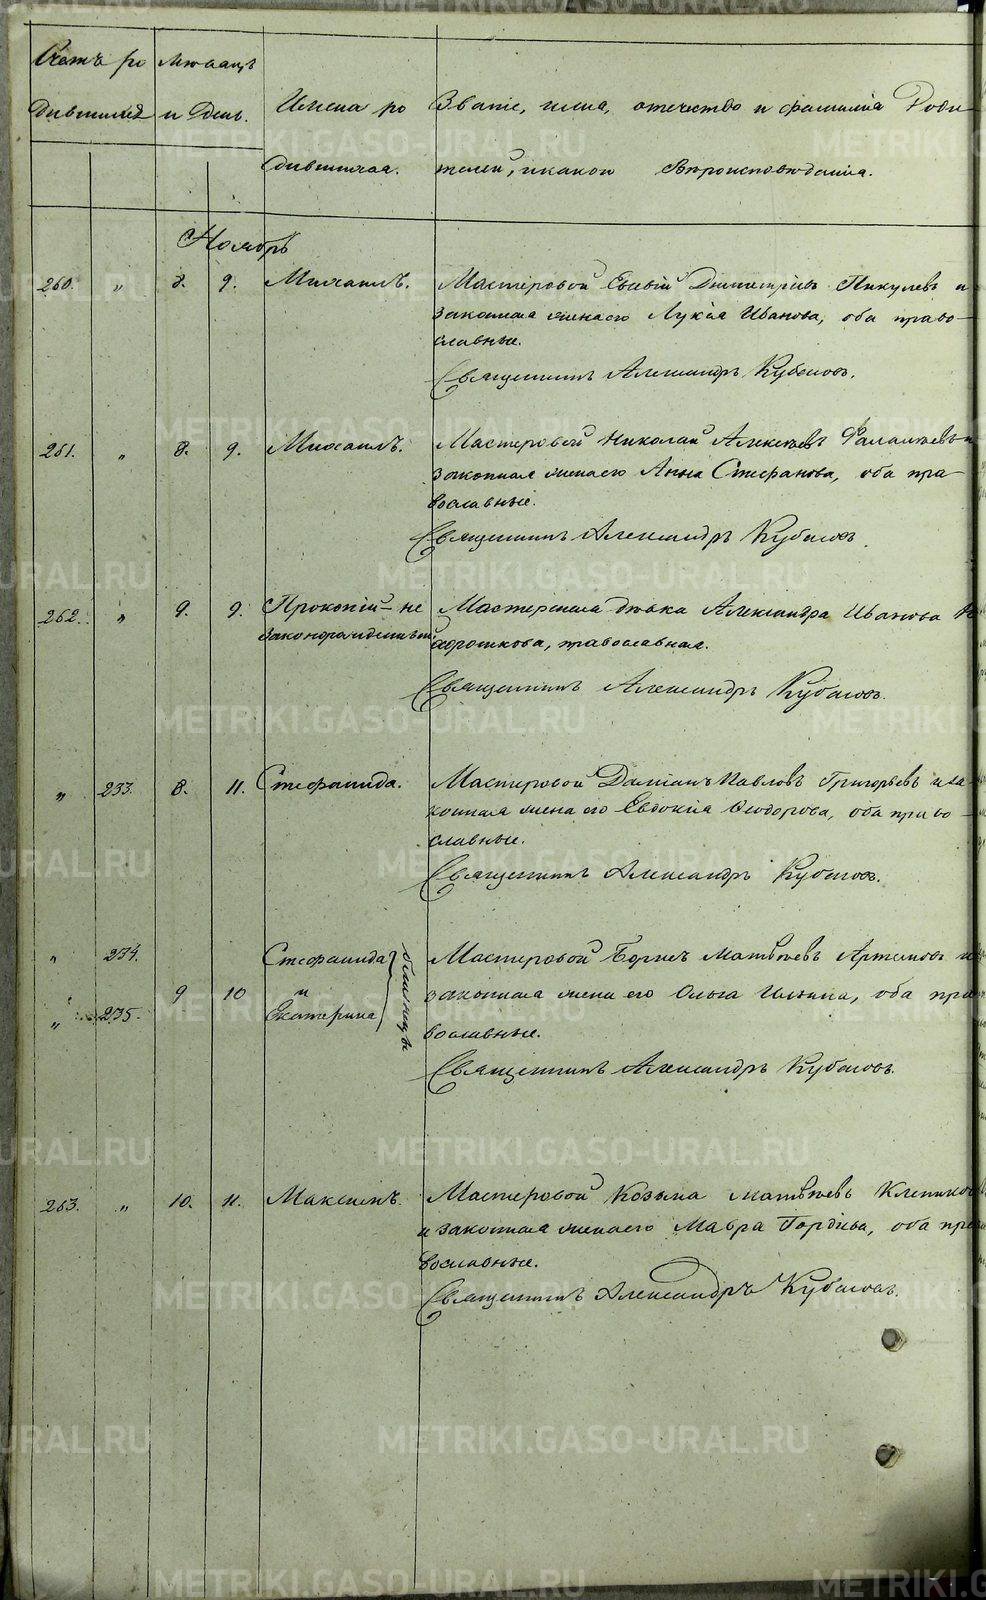 Счетъ ро Мѣсяцъ
дившихся и день. Имена ро Званіе, имя, отечество и фамилія Роди
дившихся. телей, и какой вѣроисповѣданія.
Ноябрь
260. " 8. 9. Михаилъ. Мастеровой Евсевій Димитріевъ Пикулевъ и
законная жена его Лукія Иванова, оба право-
славные.
Священникъ Александръ Кубасовъ.
261. " 8. 9. Михаилъ. Мастеровой Николай Алексѣевъ и
законная жена его Анна Стефанова, оба пра-
вославные.
Священникъ Александръ Кубасовъ
262. " 9. 9. Прокопій - не Мастерская дѣвка Александра Иванова
законорожденный православная.
Священникъ Александръ Кубасовъ.
" 233. 8. 11. Стефанида. Мастеровой Даміанъ Павловъ Григорьевъ и за
конная жена его Евдокія Ѳеодорова, оба право-
славные.
Священникъ Александръ Кубасовъ.
" 234. Стефанида Мастеровой Борисъ Матвѣевъ Артемовъ и
9 10 и близнецы законная жена его Ольга Ильина, оба пра
" 235. Екатерина вославные.
Священникъ Александръ Кубасовъ.
263. " 10. 11. Максимъ. Мастеровой Козьма Матвѣевъ
и законная жена его Мавра Гордѣева, оба пра
вославные.
Священникъ Александръ Кубасовъ.
METRIKI.GASO-URAL.RU